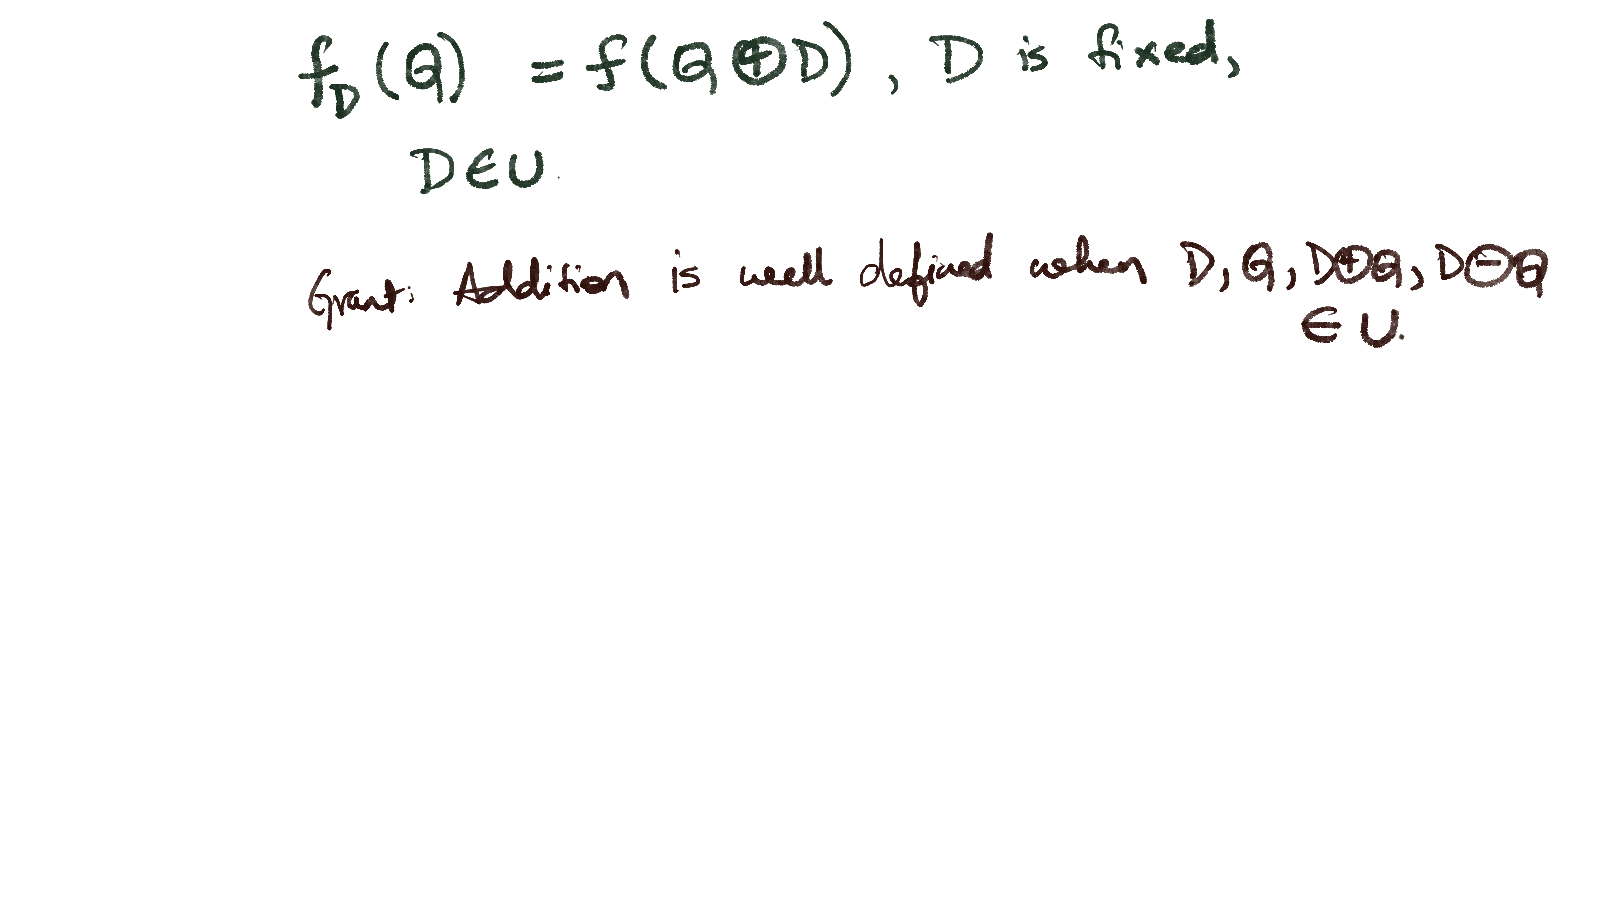 f_D(Q) = f(Q ⊕ D), D is fixed,
D ∈ U.
Grant: Addition is well defined when D, Q, D⊕Q, D⊖Q
∈ U.